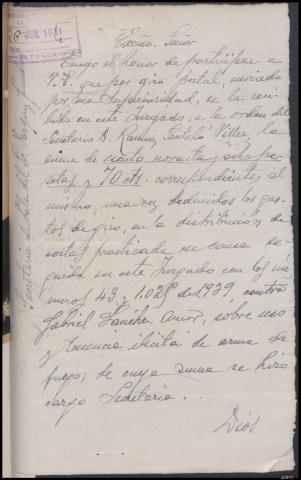 JUN. 19
ENTRADA
Excmo. Señor
Tengo el honor de participar a
V.E. que por giro postal, enviado
por esa Superioridad, se ha reci-
bido en este Juzgado, a la orden del
Secretario D. Ramón Villar, la
suma de ciento noventa y ocho pe-
setas y 70 cts. correspondientes al
mismo, una vez deducidos los gas-
tos de giro, en la distribución de
costas practicada en causa se-
guida en este Juzgado con los nú-
meros 43 y 1.028 de 1939, contra
Gabriel Sánchez sobre uso
y tenencia ilícita de arma de
fuego; de cuya suma se hizo
cargo Secretaría.
Dios
Secretaría de Sala del Sr.